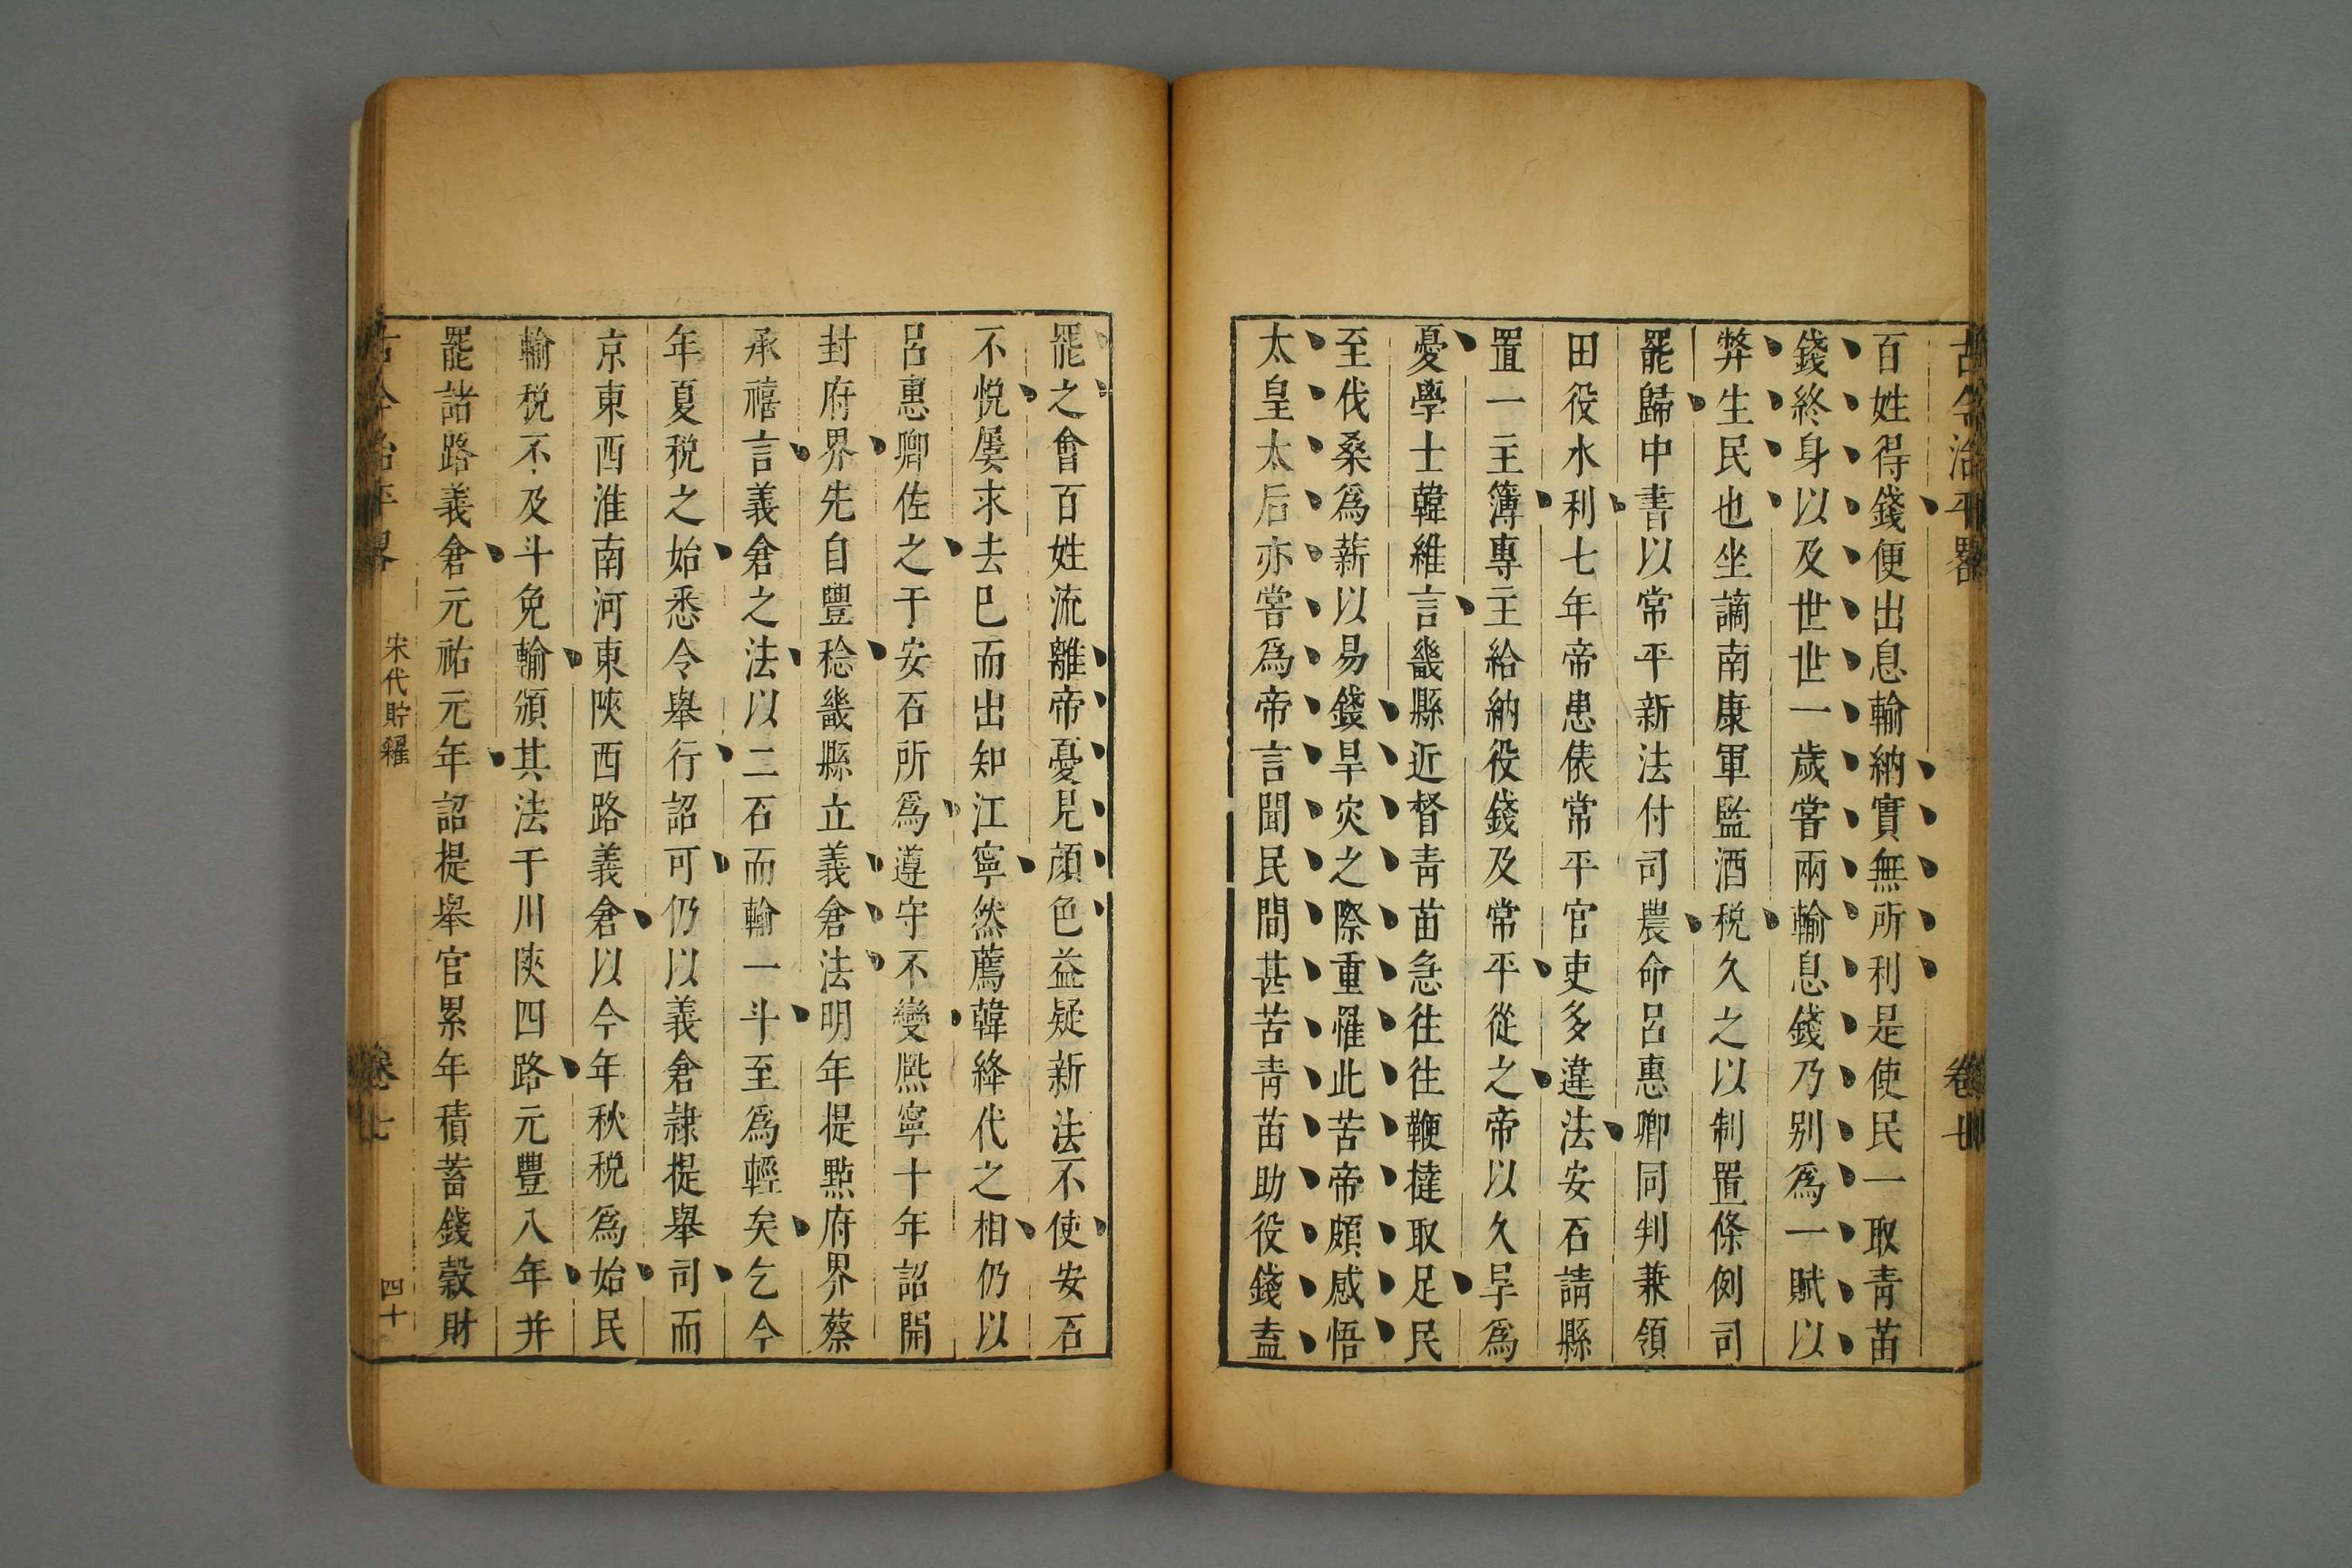 古今治平畧
卷七
百姓得錢便出息輸納實無所利是使民一取青苗
錢終身以及世世一歲嘗兩輸息錢乃別爲一賦以
弊生民也坐謫南康軍監酒税久之以制置條例司
罷歸中書以常平新法付司農命呂惠卿同判兼領
田役水利七年帝患俵常平官吏多違法安石請縣
置一主簿專主給納役錢及常平從之帝以久旱爲
憂學士韓維言畿縣近督青苗急往往鞭撻取足民
至伐桑爲薪以易錢旱灾之際重罹此苦帝頗感悟
太皇太后亦嘗爲帝言聞民間甚苦青苗助役錢盍
罷之會百姓流離帝憂見顔色益疑新法不使安石
不悅屢求去已而出知江寧然薦韓絳代之相仍以
呂惠卿佐之于安石所爲遵守不變熈寧十年詔開
封府界先自豐稔畿縣立義倉法明年提點府界蔡
承禧言義倉之法以二石而輸一斗至爲輕矣乞今
年夏税之始悉令舉行詔可仍以義倉隷提舉司而
京東西淮南河東陜西路義倉以今年秋税爲始民
輸税不及斗免輸頒其法于川陜四路元豐八年并
罷諸路義倉元祐元年詔提舉官累年積蓄錢榖財
古今治平畧
宋代貯糴
卷七
四十